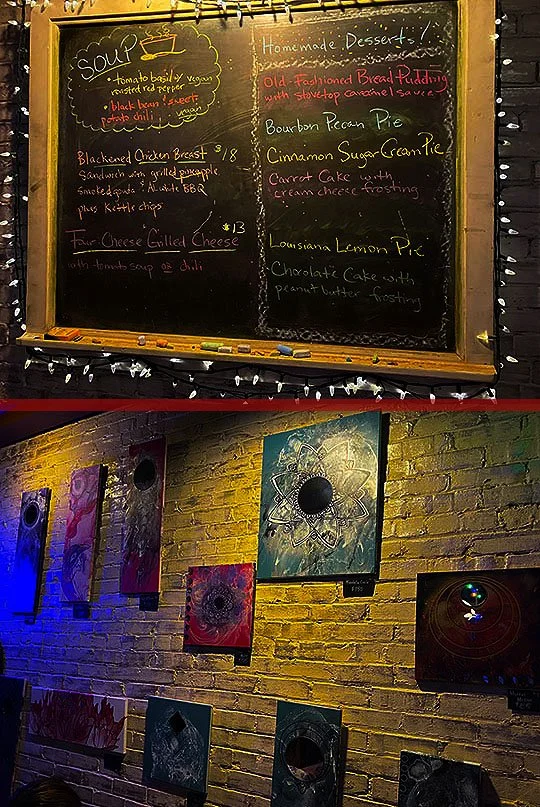 SOUP
• tomato basil w/ vegan
roasted red pepper
• black bean & sweet
potato chili vegan
Blackened Chicken Breast $18
Sandwich with grilled pineapple
smoked gouda & AL white BBQ
plus kettle chips
Four Cheese Grilled Cheese $13
with tomato soup or chili
Homemade Desserts
Old-Fashioned Bread Pudding
with stovetop caramel sauce
Bourbon Pecan Pie
Cinnamon Sugar Cream Pie
Carrot Cake with
cream cheese frosting
Louisiana Lemon Pie
Chocolate Cake with
peanut butter frosting